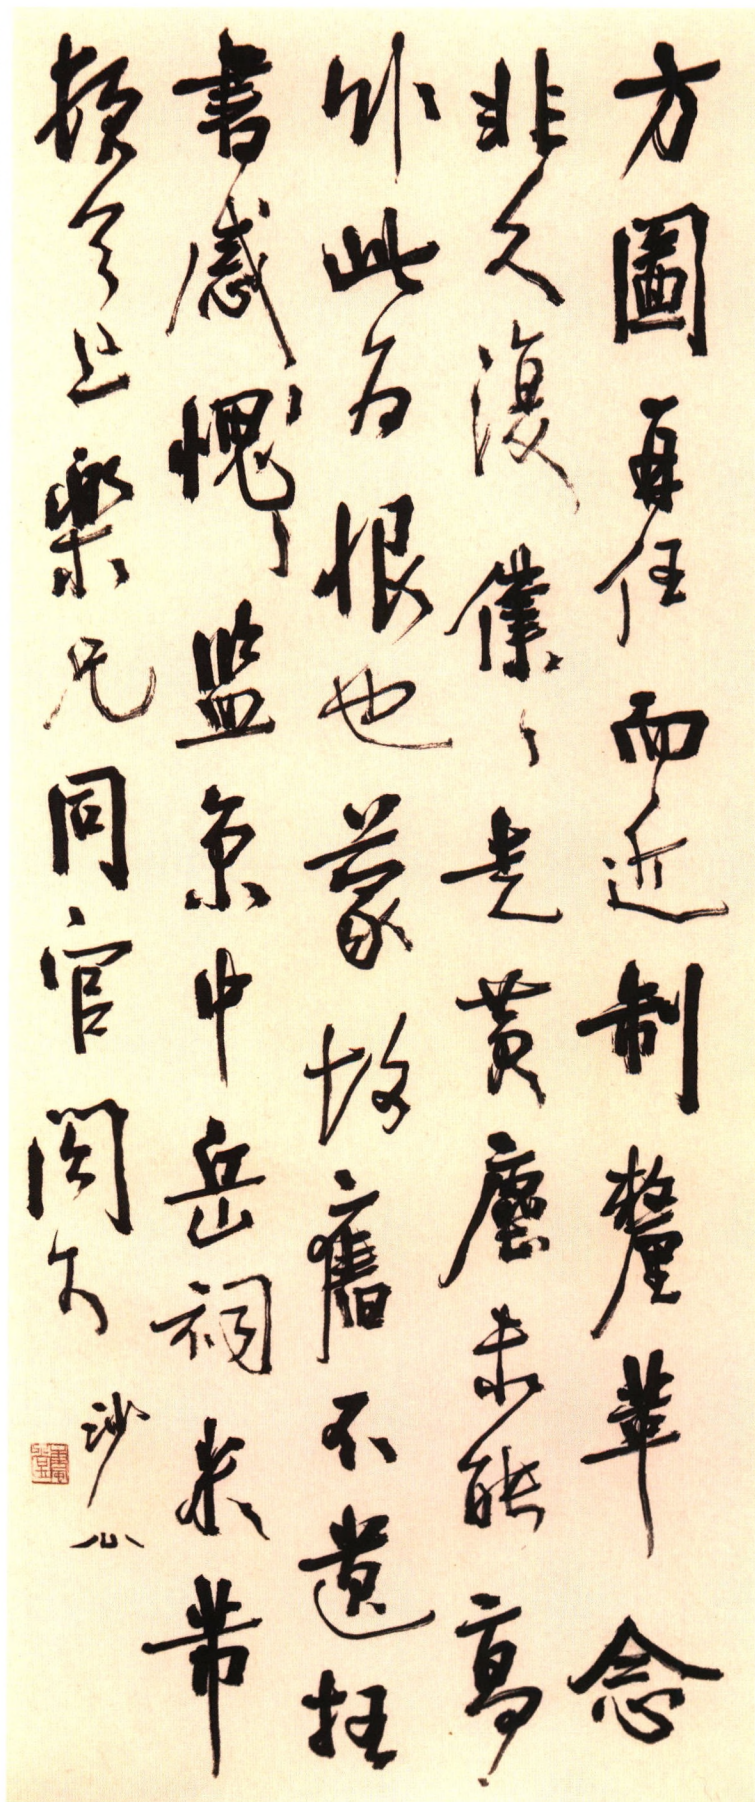 方圖再任而近制釐革念
非久復僕〻走黃塵未能高
卧此為恨也蒙故舊不遺枉
書感愧〻监京中岳祠米芾
頓首上樂兄同官閣下
沙